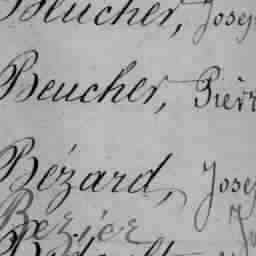 Beucher, Josep
Beucher, Pierr
Bézard, Josep
Bezier J